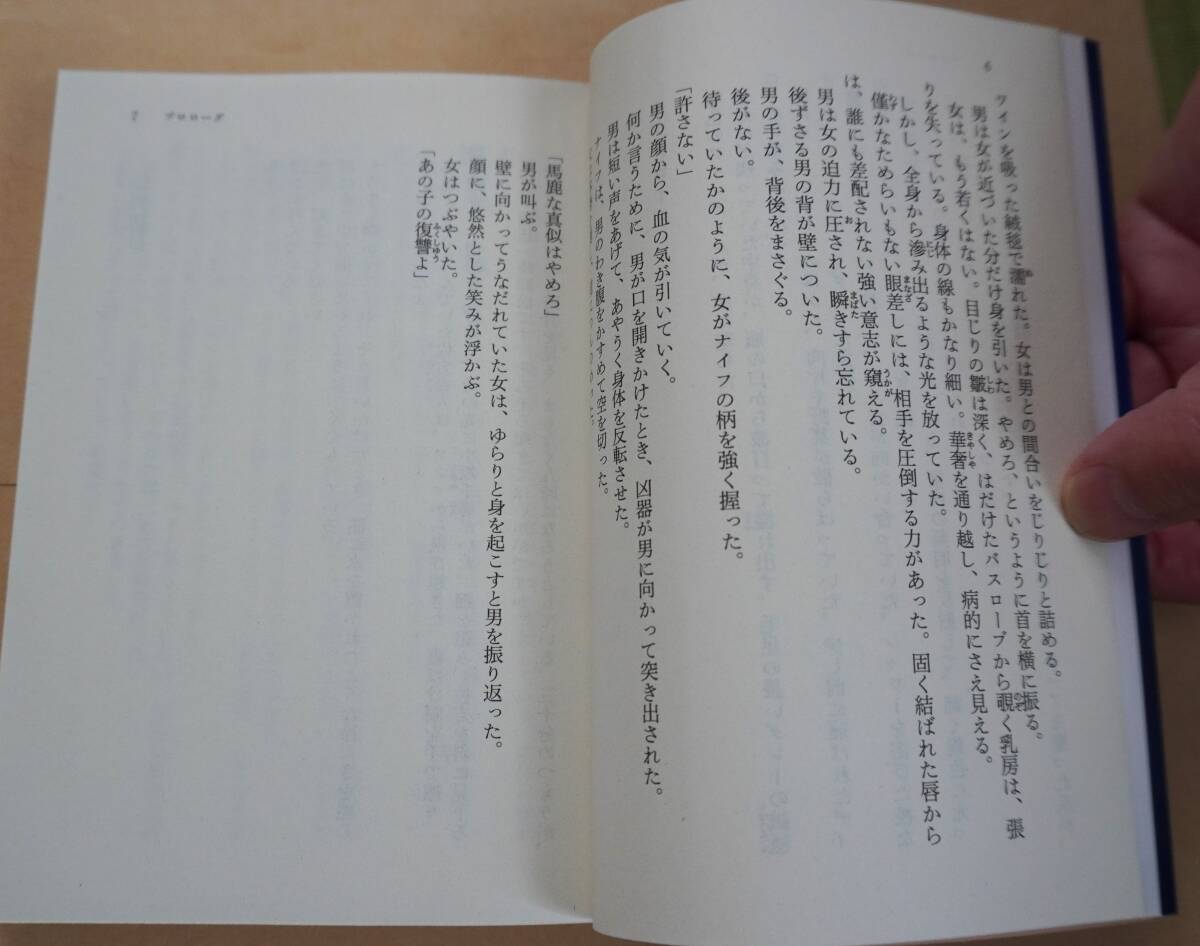 6
ワインを吸った絨毯で濡れた。女は男との間合いをじりじりと詰める。
男は女が近づいた分だけ身を引いた。やめろ、というように首を横に振る。
女は、もう若くはない。目じりの皺は深く、はだけたバスローブから覗く乳房は、張
りを失っている。身体の線もかなり細い。華奢を通り越し、病的にさえ見える。
しかし、全身から滲み出るような光を放っていた。
僅かなためらいもない眼差しには、相手を圧倒する力があった。固く結ばれた唇から
は、誰にも差配されない強い意志が窺える。
男は女の迫力に圧され、瞬きすら忘れている。
後ずさる男の背が壁についた。
男の手が、背後をまさぐる。
後がない。
待っていたかのように、女がナイフの柄を強く握った。
「許さない」
男の顔から、血の気が引いていく。
何か言うために、男が口を開きかけたとき、凶器が男に向かって突き出された。
男は短い声をあげて、あやうく身体を反転させた。
ナイフは、男のわき腹をかすめて空を切った。
7 プロローグ
「馬鹿な真似はやめろ」
男が叫ぶ。
壁に向かってうなだれていた女は、ゆらりと身を起こすと男を振り返った。
顔に、悠然とした笑みが浮かぶ。
女はつぶやいた。
「あの子の復讐よ」